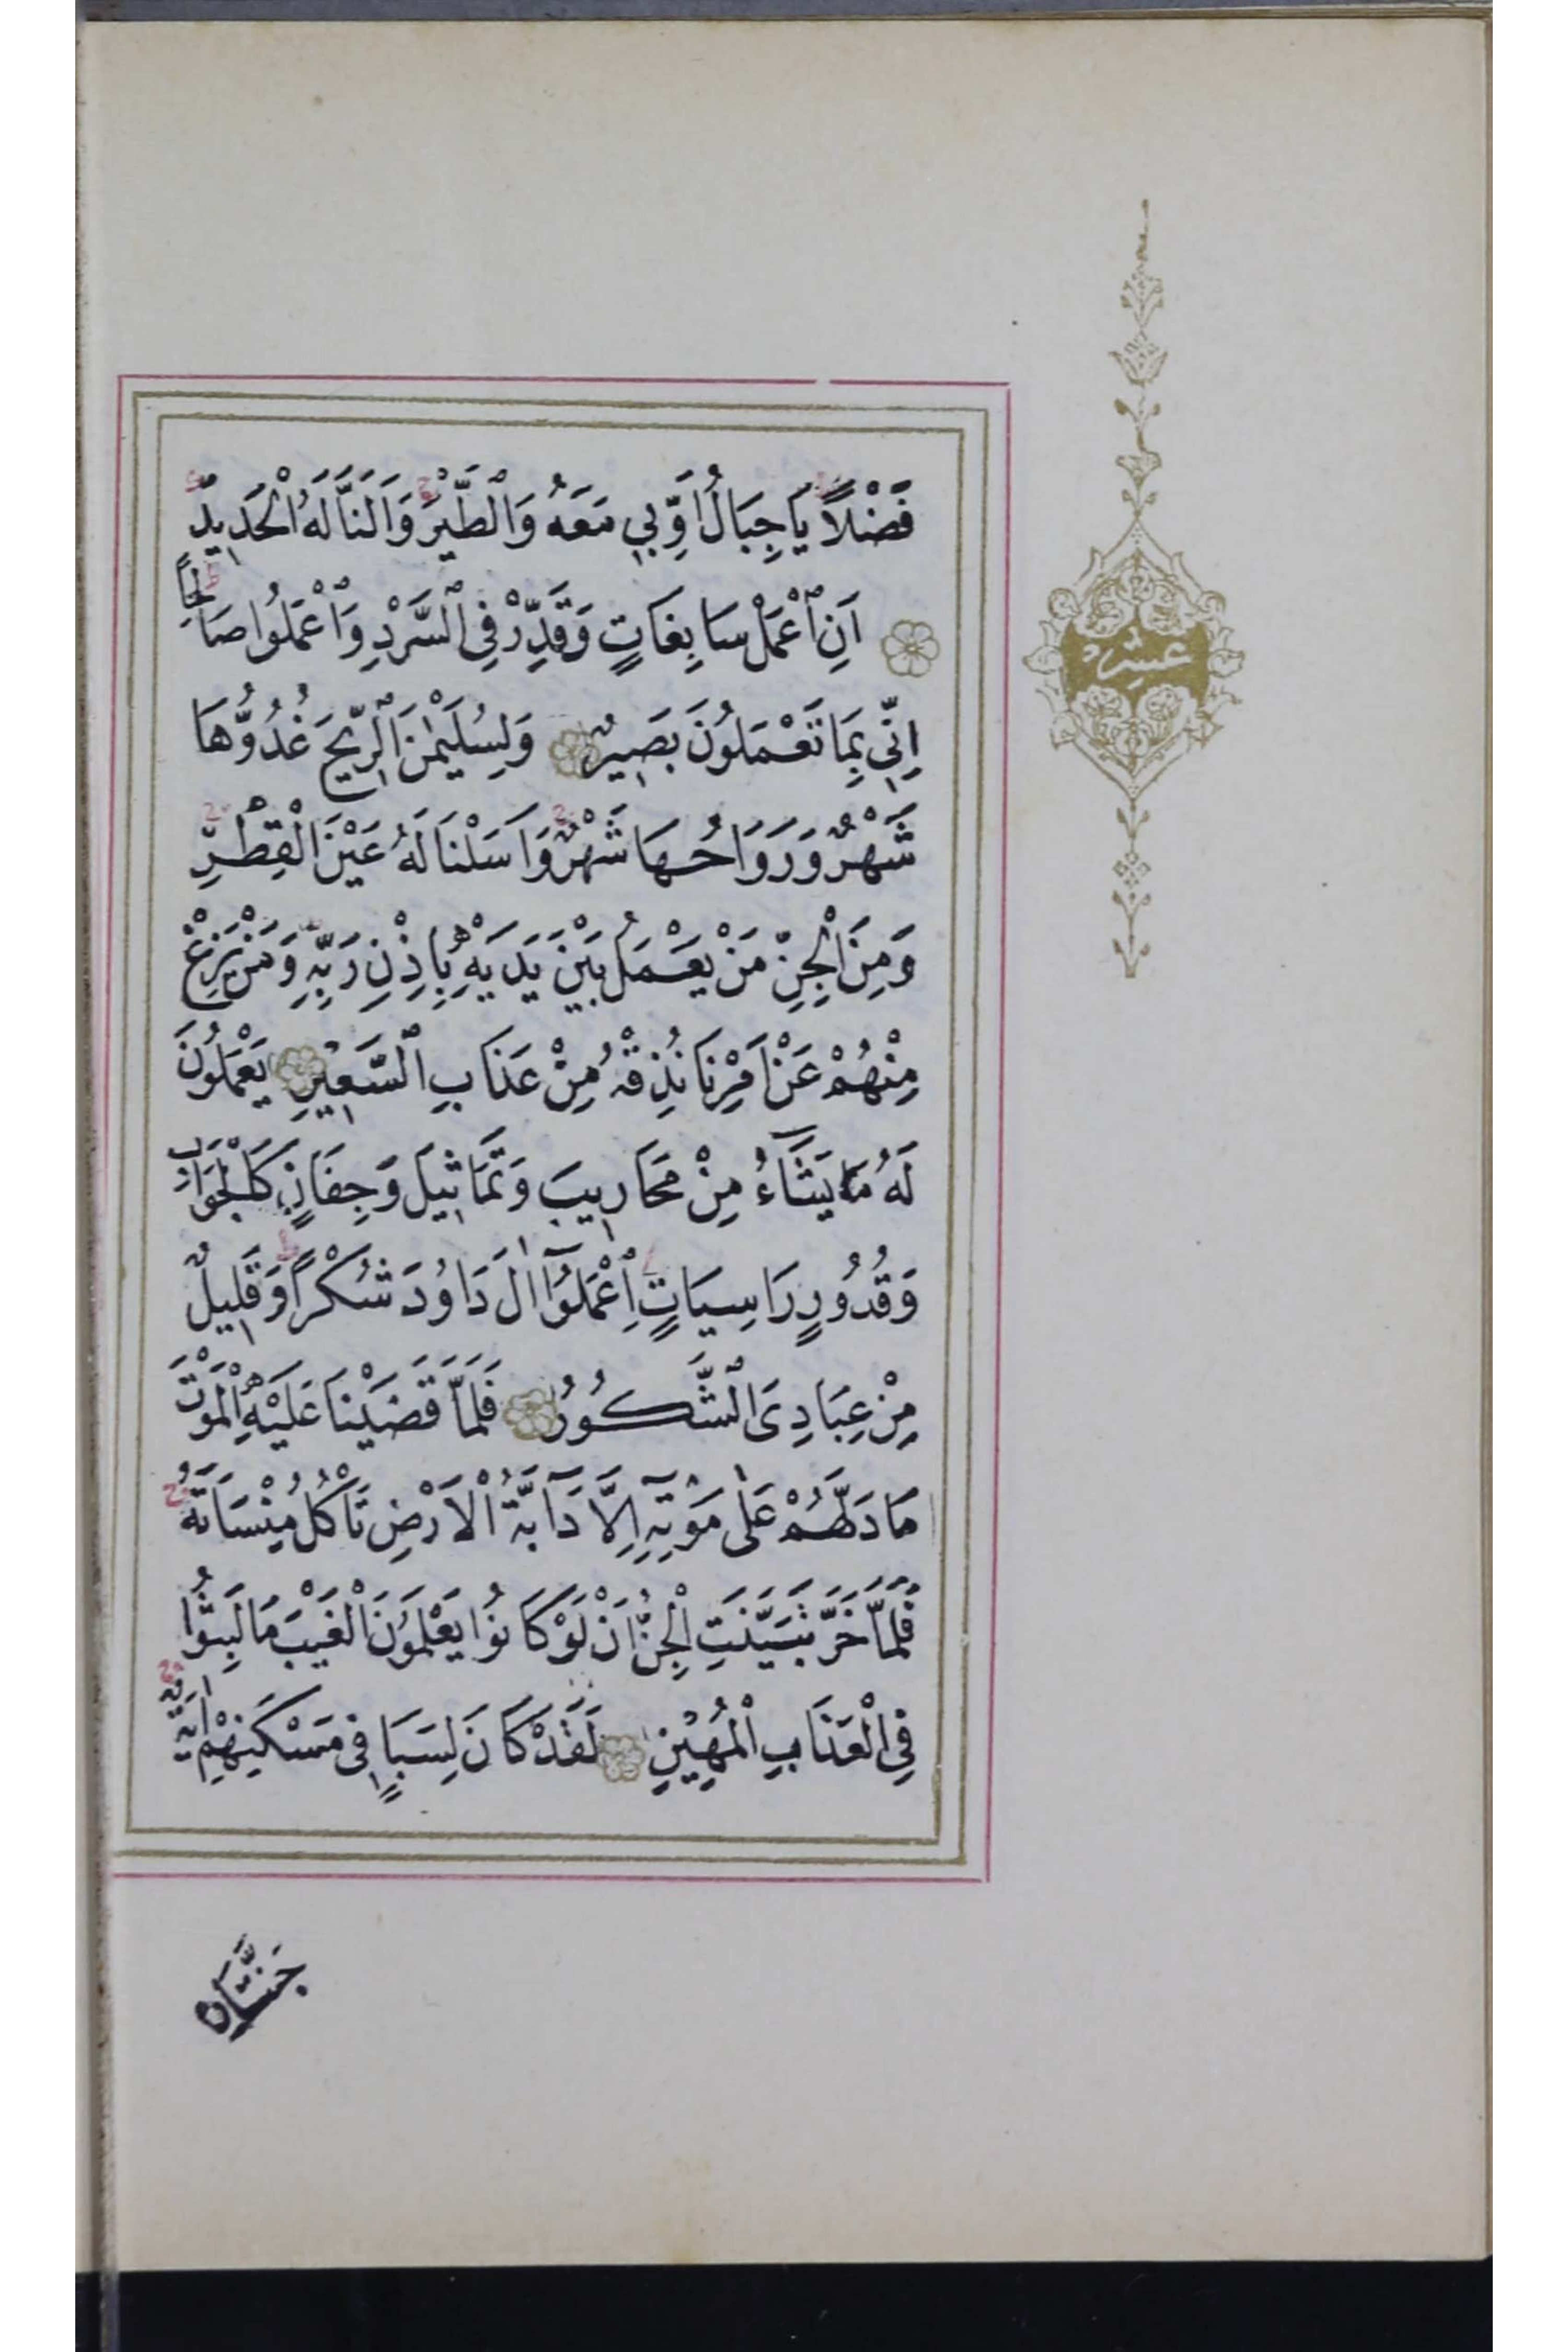 فَضْلًا يَا جِبَالُ اَوِّبِي مَعَهُ وَالطَّيْرَ وَاَلَنَّا لَهُ الْحَدِيدَ
اَنِ اعْمَلْ سَابِغَاتٍ وَقَدِّرْ فِي السَّرْدِ وَاعْمَلُوا صَالِحًا
عشر
اِنِّي بِمَا تَعْمَلُونَ بَصِيرٌ وَلِسُلَيْمٰنَ الرِّيحَ غُدُوُّهَا
شَهْرٌ وَرَوَاحُهَا شَهْرٌ وَاَسَلْنَا لَهُ عَيْنَ الْقِطْرِ
وَمِنَ الْجِنِّ مَنْ يَعْمَلُ بَيْنَ يَدَيْهِ بِاِذْنِ رَبِّهِ وَمَنْ يَزِغْ
مِنْهُمْ عَنْ اَمْرِنَا نُذِقْهُ مِنْ عَذَابِ السَّعِيرِ يَعْمَلُونَ
لَهُ مَا يَشَآءُ مِنْ مَحَارِيبَ وَتَمَاثِيلَ وَجِفَانٍ كَالْجَوَابِ
وَقُدُورٍ رَاسِيَاتٍ اِعْمَلُوٓا اٰلَ دَاوُدَ شُكْرًا وَقَلِيلٌ
مِنْ عِبَادِيَ الشَّكُورُ فَلَمَّا قَضَيْنَا عَلَيْهِ الْمَوْتَ
مَا دَلَّهُمْ عَلٰى مَوْتِهِٓ اِلَّا دَآبَّةُ الْاَرْضِ تَاْكُلُ مِنْسَاَتَهُ
فَلَمَّا خَرَّ تَبَيَّنَتِ الْجِنُّ اَنْ لَوْ كَانُوا يَعْلَمُونَ الْغَيْبَ مَا لَبِثُوا
فِي الْعَذَابِ الْمُهِينِ لَقَدْ كَانَ لِسَبَاٍ فِي مَسْكَنِهِمْ اٰيَةٌ
جَنَّتَانِ